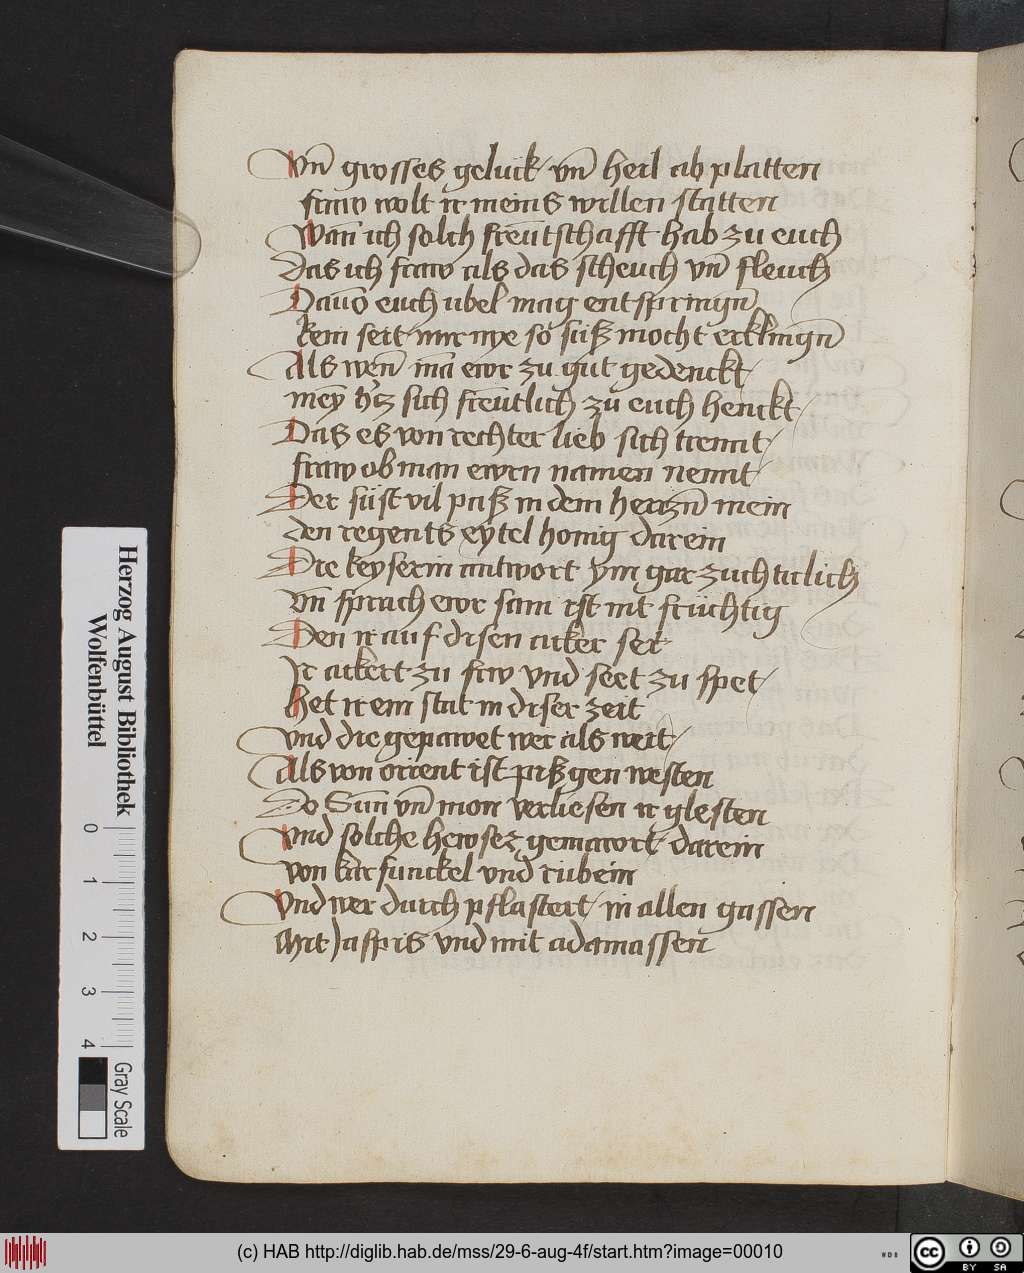 Vn̄ grosses geluck vn̄ heil ab platten
fraw wolt ir meins willen statten
Wan̄ ich solch freu̅tschafft hab zu euch
das ich fraw als das scheuch vn̄ fleuch
Dauō euch ubel mag entspringn̄
kein seit mir nye so süß mocht ercklingn̄
Als wen̄ mā ewr zu gut gedenckt
mey̅ h'tz sich freu̅tlich zu euch henckt
Das es von rechter lieb sich trennt
fraw ob man ewrn namen nennt
Der süst vil paß in dem hertzn̄ mein
den regents eytel honig darein
Die keyserin antwort ym gar zuchticlich
vn̄ sprach ewr sam ist nit fruchtig
Den ir auf disen acker set
Ir ackert zu frw vnd seet zu spet
Het ir ein stat in diser zeit
vnd die gepawet wer als weit
Als von orient ist piß gen westen
Do Sun̄ vn̄ mon verliesen ir glesten
Vnd solche hewser gemawrt darein
von karfunckel vnd rubein
Vnd wer durch pflastert in allen gassen
Mit Jaspis vnd mit adamassen
Herzog August Bibliothek
Wolfenbüttel
0 1 2 3 4
Gray Scale
(c) HAB http://diglib.hab.de/mss/29-6-aug-4f/start.htm?image=00010
WDB
cc BY SA